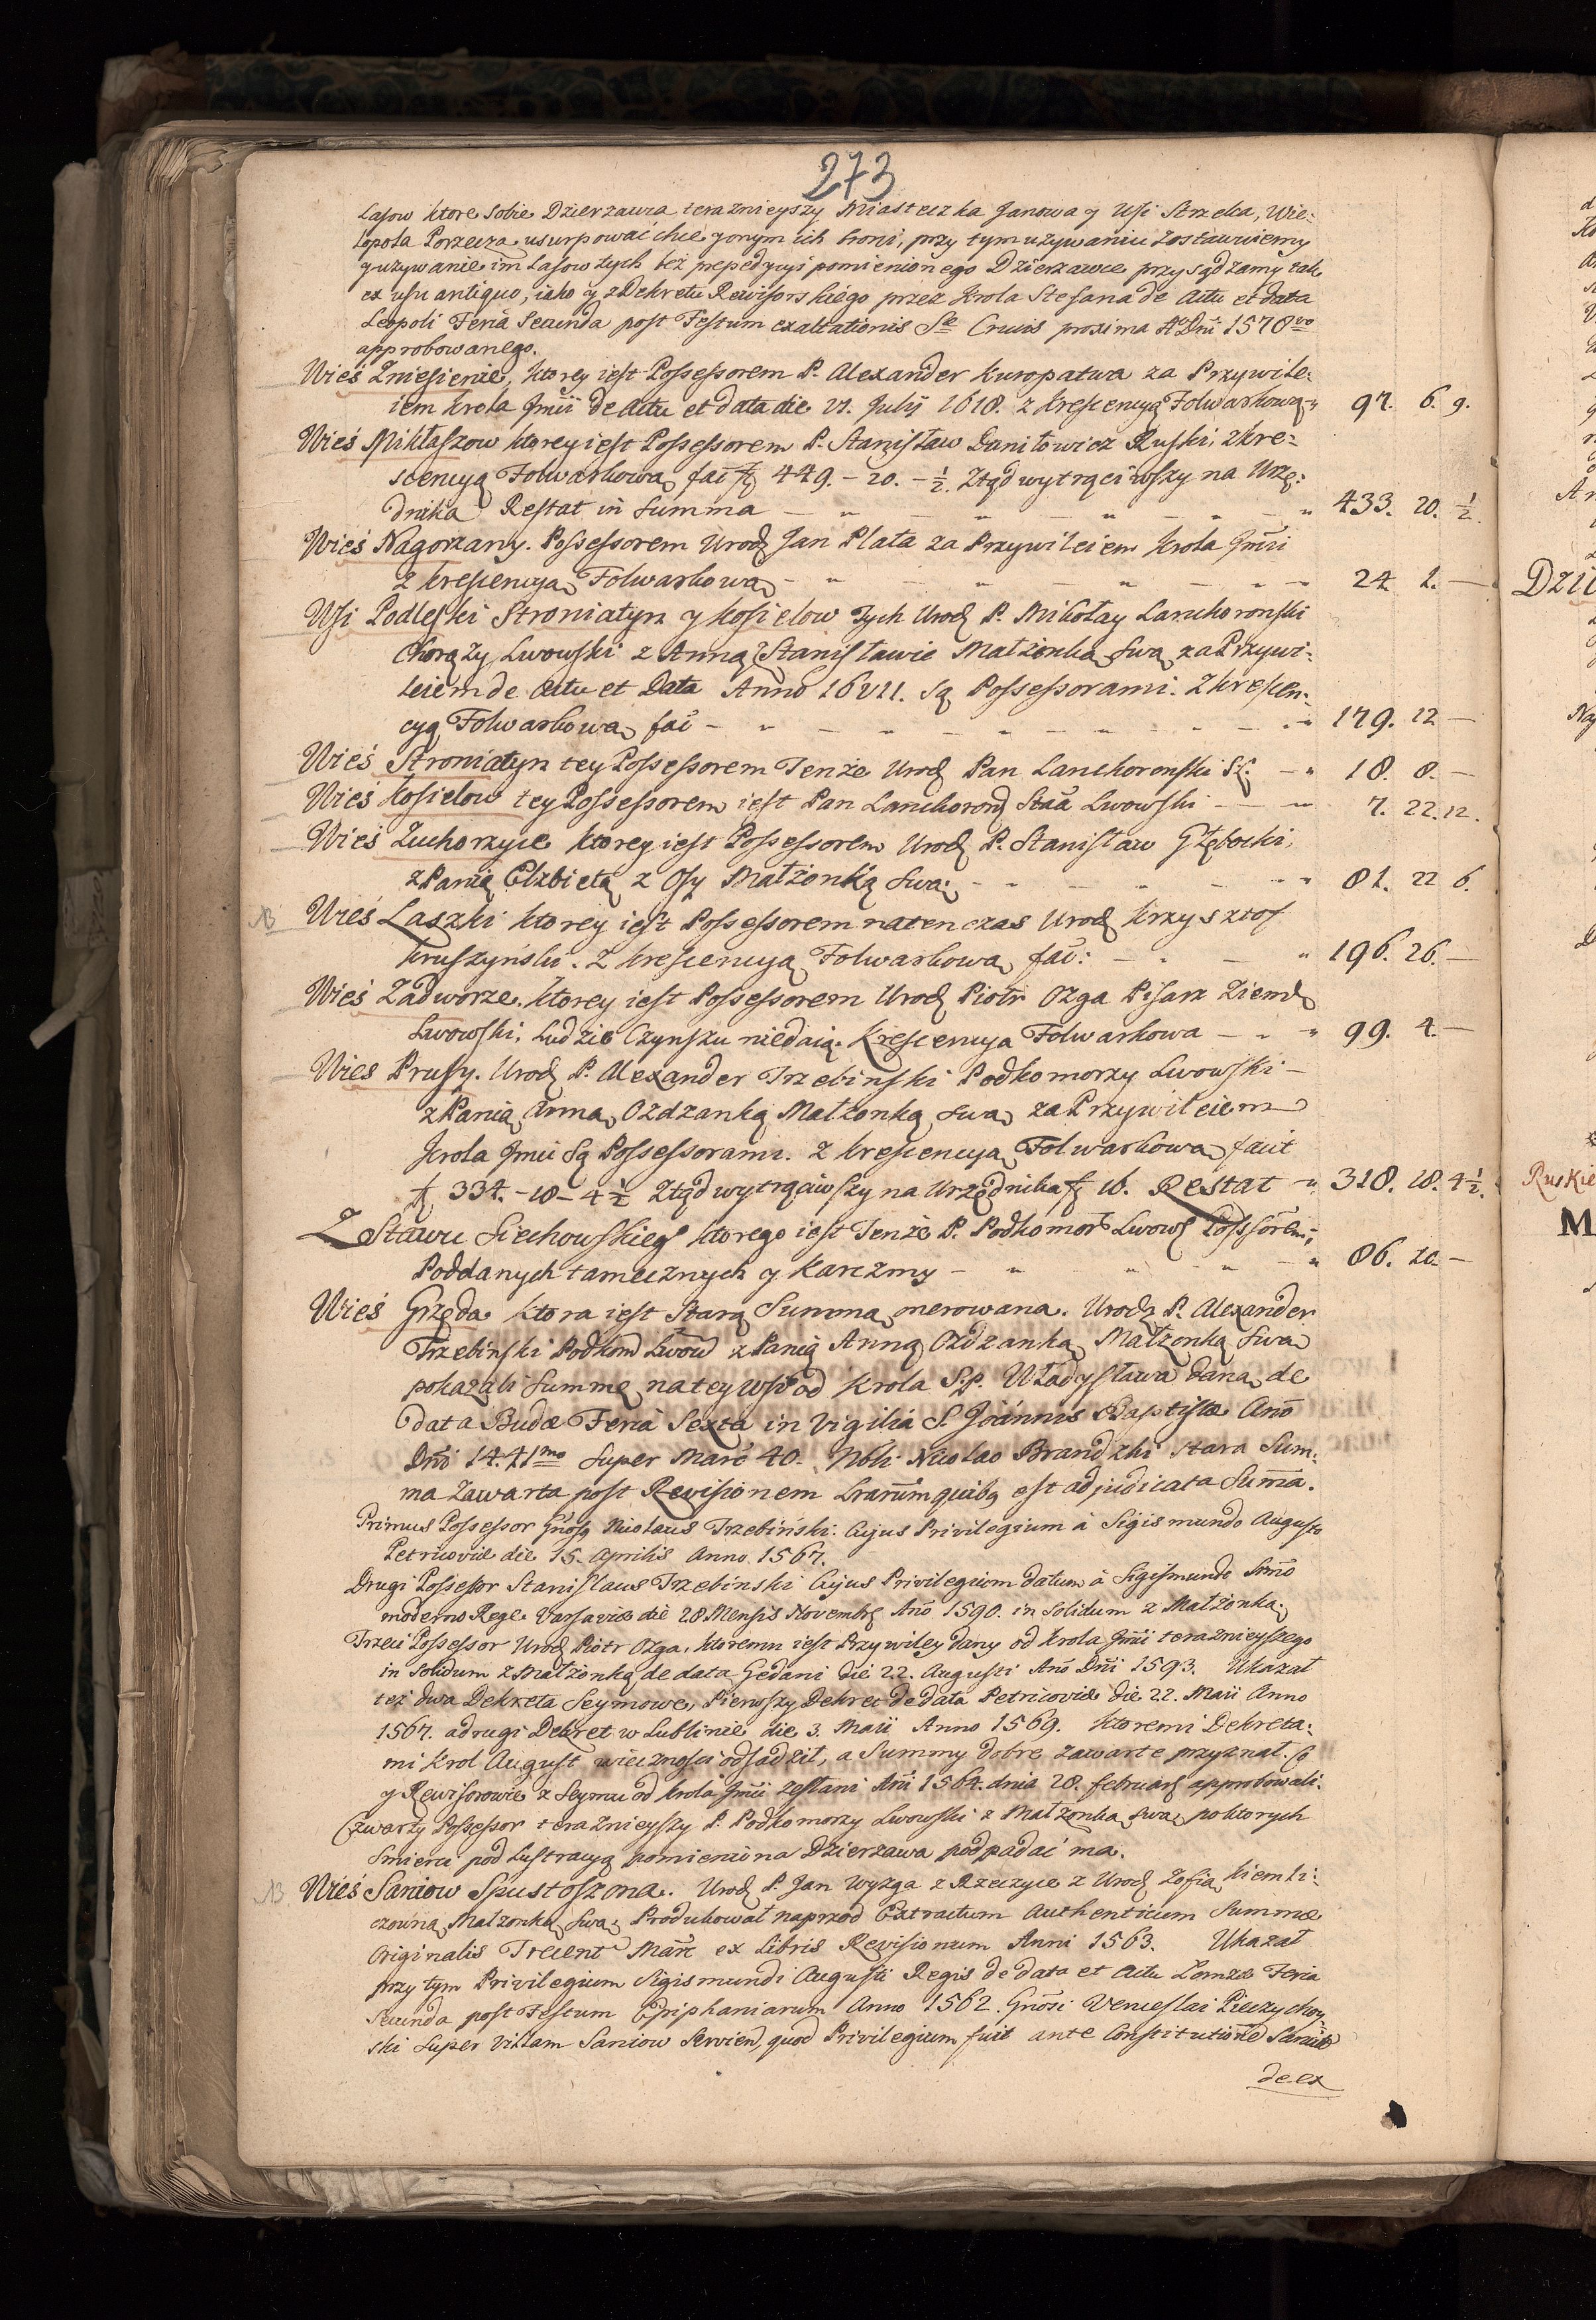 273
Lasow ktore sobie Dzierzawca teraznieyszy Miasteczka Janowa y Wsi Strzelca, Wie:
lopola Porzecza usurpować chce y onym ich broni, przy tym uzywaniu zostawuiemy
y uzywanie im Lasow tych bez prepedycyi pomienionego Dzierzawce przysądzamy tak
ex usu antiquo, iako y z Dekretu Rewisorskiego przez Krola Stefana de Actu et data
Leopoli Feria Secunda post Festum exaltationis Sæ Crucis proxima Ao Dni 1578vo
approbowanego.
Wieś Zniesienie, ktorey iest Possessorem P. Alexander Kuropatwa za Przywile:
iem Krola Jmći de Actu et data die 17. Julij 1618. z krescencyą Folwarkową " 97. 6. 9.
Wieś Mikłaszow ktorey iest Possessorem P. Stanisław Daniłowicz Ruski, z kre:
scencyą Folwarkową fac fl 449. - 20. - ½. Ztąd wytrąciwszy na Urzę:
dnika Restat in Summa " 433. 20. ½.
Wieś Nagorzany. Possessorem Urodz Jan Plata za Przywileiem Krola Jmći
z krescencyą Folwarkową 24 2. —
Wsi Podleski Stroniatyn y Kosielow Tych Urodz P. Mikołay Lanckoronski
Chorąży Lwowski z Anną Stanisławic Małżonką swą za Przywi:
leiem de Actu et Data Anno 16 VII. są Possessorami. Z krescen:
cyą Folwarkową fac " 179. 12 —
Wieś Stroniatyn tey Possessorem Tenże Urodz Pan Lanckoronski St. " 18. 8. —
Wieś Kosielow tey Possessorem iest Pan Lanckoron Stta Lwowski " 7. 22. 12.
Wieś Zuchorzyce ktorey iest Possessorem Urodz P. Stanisław Głębocki,
z Panią Elżbietą z Osy Małżonką swą: " 81. 22 6.
NB Wieś Laszki ktorey iest Possessorem naten czas Urodz Krzysztof
Kruszyński. Z krescencyą Folwarkową fac: " 196. 26. —
Wieś Zadworze. ktorey iest Possessorem Urodz Piotr Ozga Pisarz Ziemb
Lwowski, Ludzie Czynszu niedaią. Krescencya Folwarkowa " 99. 4. —
Wieś Prusy. Urodz P. Alexander Trzebinski Podkomorzy Lwowski —
z Panią Anną Ozdzanką Małżonką swą za Przywileiem
Krola Jmći Są Possessorami. Z krescencyą Folwarkową facit
fl 334. - 18 - 4½ Ztąd wytrąciwszy na Urzędnika fl 16. Restat " 318. 18. 4½.
Z Stawu Siechowskieg ktorego iest Tenże P. Podkomor Lwows Possorem;
Poddanych tamecznych y Karczmy " 86. 20. —
Wieś Grzęda ktora iest Starą Summą onerowana. Urodz P. Alexander
Trzebinski Podkom Lwow z Panią Anną Ozdzanką Małżonką swą
pokazali Summę na tey Wsi od Krola S.P. Władysława daną de
data Budæ Feria Sexta in Vigilia S. Joannis Baptistæ Ano
Dni 14.41mo Super Marc 40. Nbli Nicolao Brandzki stara Sum:
ma Zawarta post Revisionem Lrarum quibq est adjudicata Suma.
Primus Possessor Gnosq Nicolaus Trzebiński. Cujus Privilegium à Sigismundo Augusto
Petricoviæ die 15. Aprilis Anno 1567.
Drugi Possesor Stanislaus Trzebinski Cujus Privilegium datum à Sigismundo Smo
moderno Rege. Varsaviæ die 28 Mensis Novembr Ano 1590. in Solidum z Małżonką;
Trzeci Possessor Urodz Piotr Ozga, ktoremu iest Przywiley dany od Krola Jmći teraznieyszego
in Solidum z Małżonką de data Gedani die 22. Augusti Ano Dni 1593. Ukazał
też dwa Dekreta Seymowe, Pierwszy Dekret de data Petricoviæ die 22. Maii Anno
1567. a drugi Dekret w Lublinie die 3. Maii Anno 1569. ktoremi Dekreta:
mi Krol August wieczności odsądził, a Summy dobre zawarte przyznał. Co
y Rewisorowie z Seymu od Krola Jmći zesłani Ani 1564. dnia 28. Februar approbowali.
Czwarty Possessor teraznieyszy P. Podkomorzy Lwowski z Małżonką swą po ktorych
Smierci pod Lustracyą pomieniona Dzierzawa podpadać ma.
NB Wieś Saniow Spustoszona. Urodz P. Jan Wyzga z Rzeczyce z Urodz Zofią Kiemli:
czowną Małżonką swą; Produkował naprzod Extractum Authenticum Summæ
Originalis Trecent Marc ex Libris Revisionum Anni 1563. Ukazał
przy tym Privilegium Sigismundi Augusti Regis de data et Actu Lomzæ Feria
Secunda post Festum Epiphaniarum Anno 1562. Gnosi Venceslai Pieczychoy:
ski Super Villam Saniow Servien, quod Privilegium fuit ante Constitutione Sancita
de ex